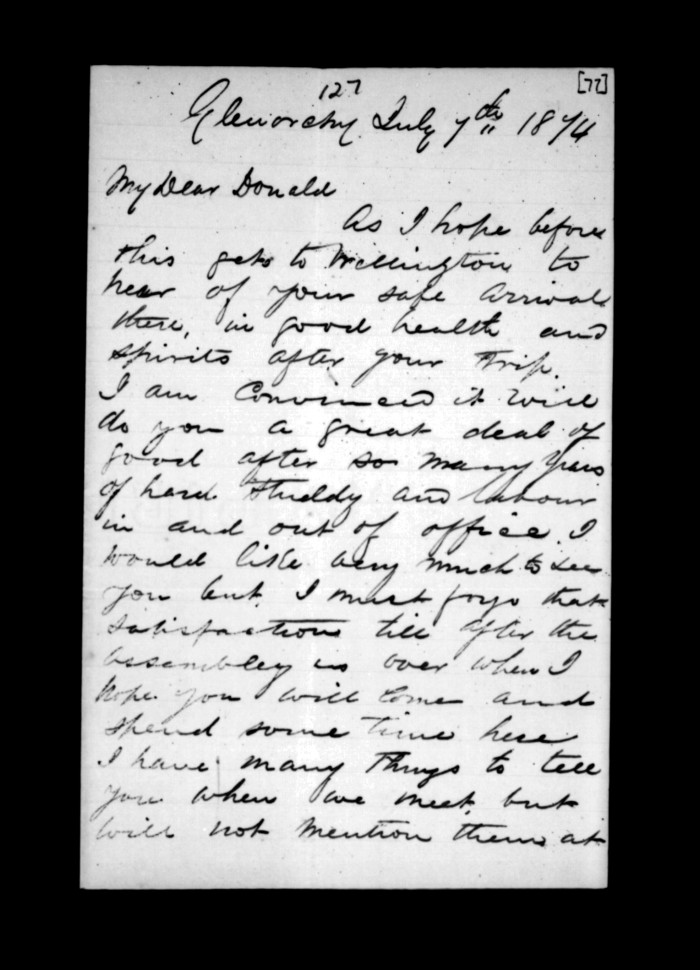 127
[77]
Glenorchy July 7th 1874
My Dear Donald
As I hope before
this gets to Wellington to
hear of your safe arrival
there, in good health and
spirits after your trip.
I am Convinced it will
do you a great deal of
good after so many years
of hard Studdy and labour
in and out of office. I
would like very much to see
you but I must forgo that
satisfaction till after the
assembley is over when I
hope you will Come and
spend some time here
I have many things to tell
you when we meet, but
will not mention them at